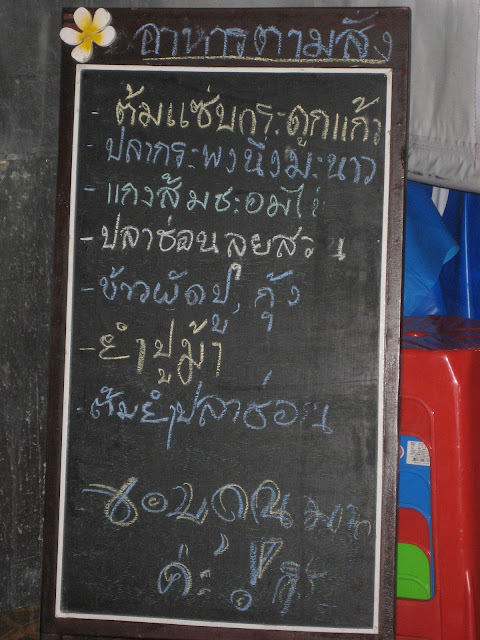 อาหารตามสั่ง
- ต้มแซ่บกระดูกแก้ว
- ปลากระพงนึ่งมะนาว
- แกงส้มชะอมไข่
- ปลาช่อนลุยสวน
- ข้าวผัดปู, กุ้ง
- ยำปูม้า
- ต้มยำปลาช่อน
ขอบคุณมาก
ค่ะ